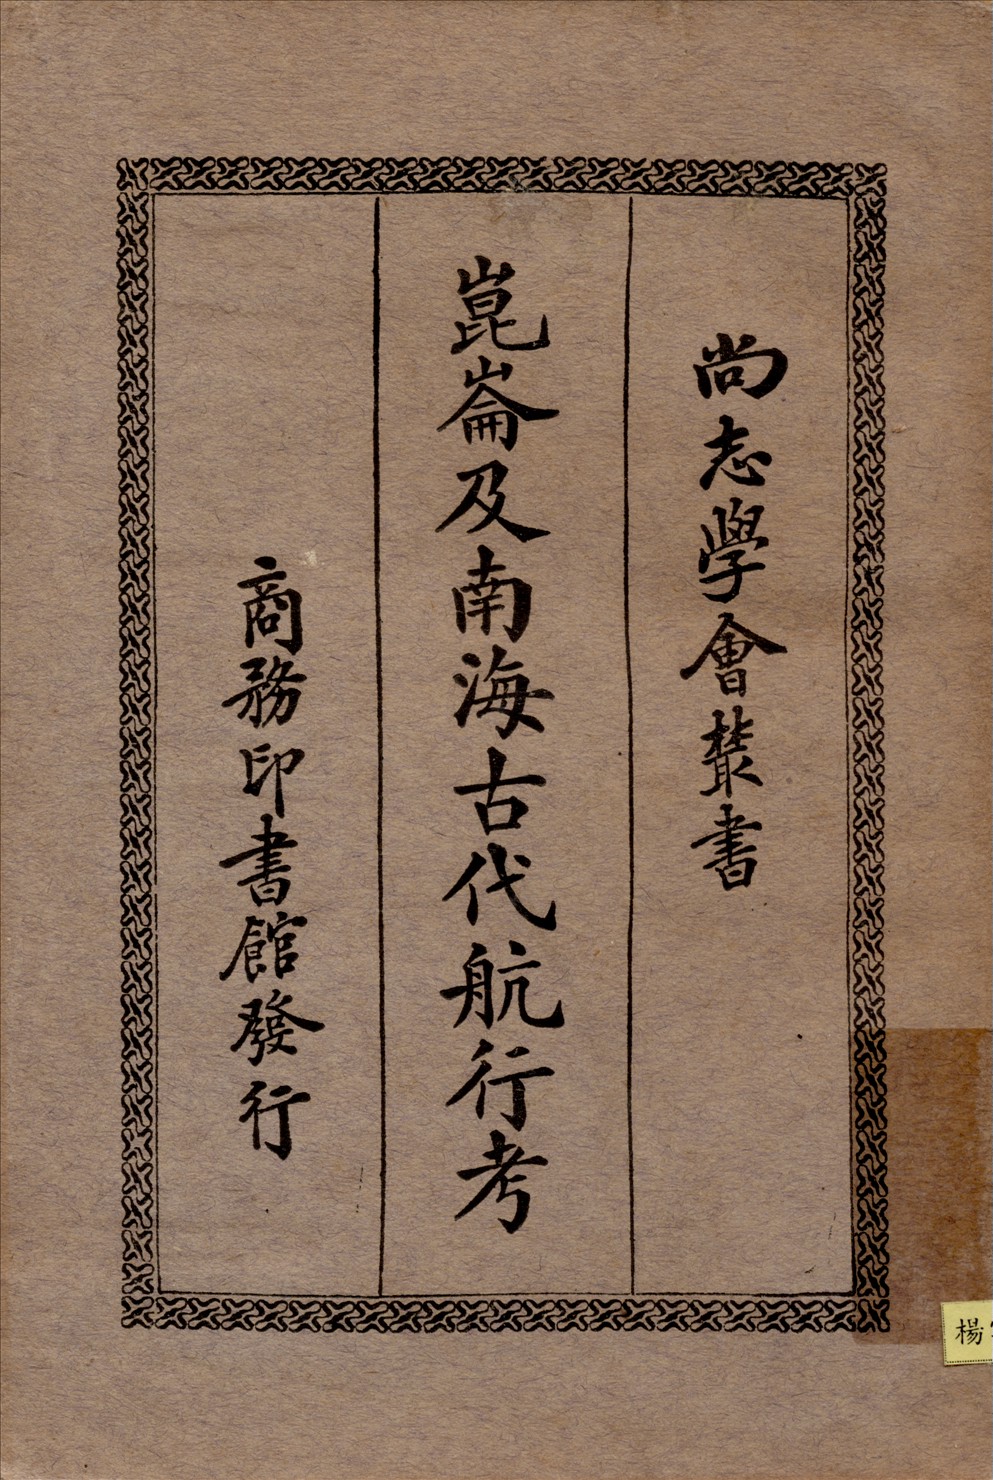 尚志學會叢書
崑崙及南海古代航行考
商務印書館發行
楊